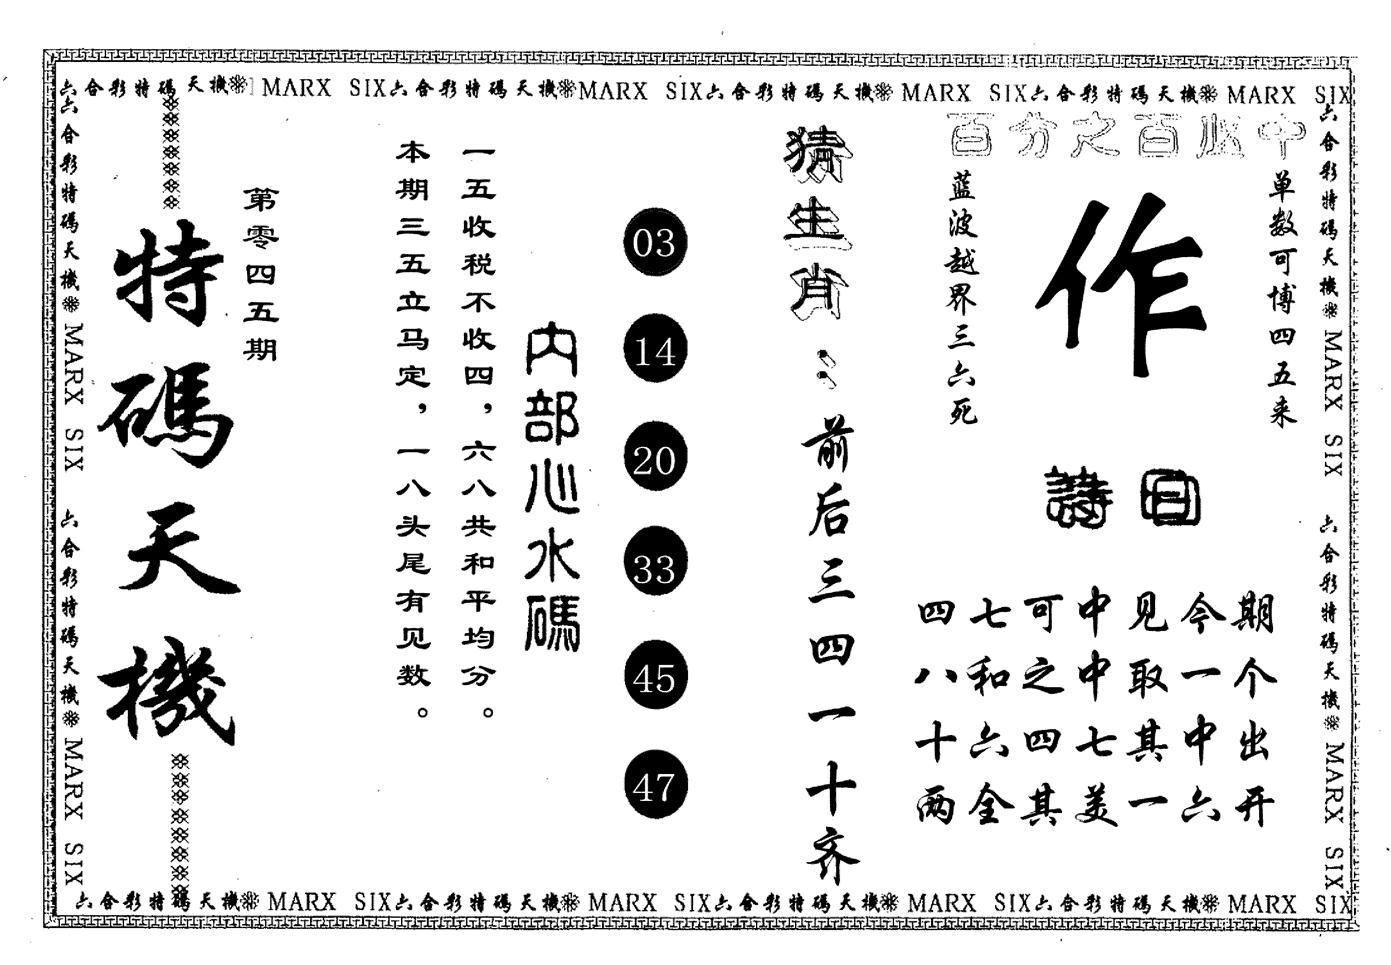 六合彩特碼天機 MARX SIX六合彩特碼天機 MARX SIX六合彩特碼天機 MARX SIX六合彩特碼天機 MARX SIX
六合彩特碼天機 MARX SIX 六合彩特碼天機 MARX SIX
百分之百必中
单数可博四五来
作
蓝波越界三六死
詩曰
四七可中见今期
八和之中取一个
十六四七其中出
两全其美一六开
猜生肖：前后三四一十齐
03
14
20
33
45
47
内部心水碼
一五收税不收四，六八共和平均分。
本期三五立马定，一八头尾有见数。
第零四五期
特碼天機
六合彩特碼天機 MARX SIX 六合彩特碼天機 MARX SIX
六合彩特碼天機 MARX SIX六合彩特碼天機 MARX SIX六合彩特碼天機 MARX SIX六合彩特碼天機 MARX SIX